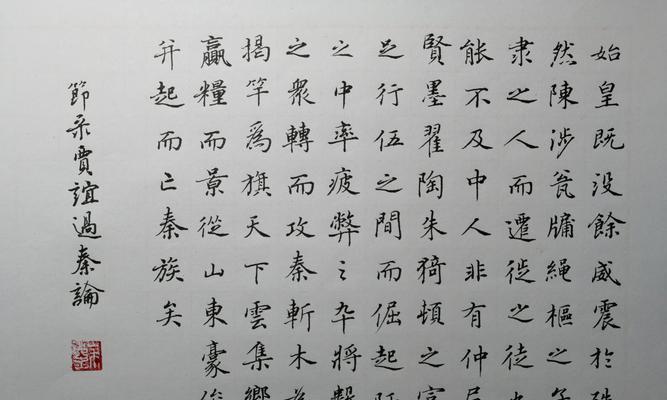 始皇既没餘威震於
然陳涉瓮牖繩樞之
隶之人而遷徙之徒
能不及中人非有仲
賢墨翟陶朱猗頓之
足行伍之間而倔起
之中率疲弊之卆將
之衆轉而攻秦斬木
揭竿爲旗天下雲集
贏糧而景從山東豪
并起而亡秦族矣
節录賈誼過秦論